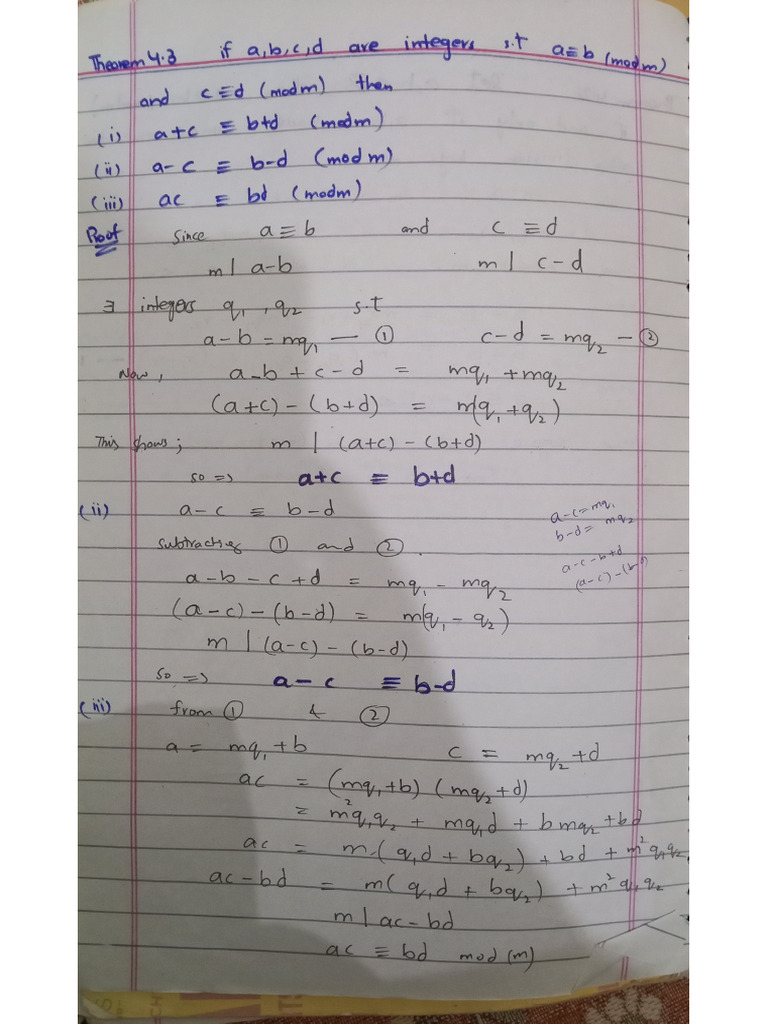 Theorem 4.3 if a,b,c,d are integers s.t a≡b (mod m)
and c≡d (mod m) then
(i) a+c ≡ b+d (mod m)
(ii) a-c ≡ b-d (mod m)
(iii) ac ≡ bd (mod m)
Proof Since a≡b and c ≡d
m | a-b m | c-d
∃ integers q₁ , q₂ s.t
a-b = mq₁ — ① c-d = mq₂ — ②
Now, a-b + c-d = mq₁ + mq₂
(a+c) - (b+d) = m(q₁+q₂)
This shows; m | (a+c) - (b+d)
so => a+c ≡ b+d
(ii) a-c ≡ b-d
a-c = mq₁
b-d = mq₂
subtracting ① and ② .
a-c-b+d
(a-c)-(b-d)
a-b-c+d = mq₁ - mq₂
(a-c) - (b-d) = m(q₁ - q₂)
m | (a-c) - (b-d)
so => a-c ≡ b-d
(iii) from ① & ②
a = mq₁+b c = mq₂+d
ac = (mq₁+b) (mq₂+d)
= m²q₁q₂ + mq₁d + bmq₂ + bd
ac = m.(q₁d + bq₂) + bd + m²q₁q₂
ac-bd = m(q₁d + bq₂) + m²q₁q₂
m | ac-bd
ac ≡ bd mod (m)